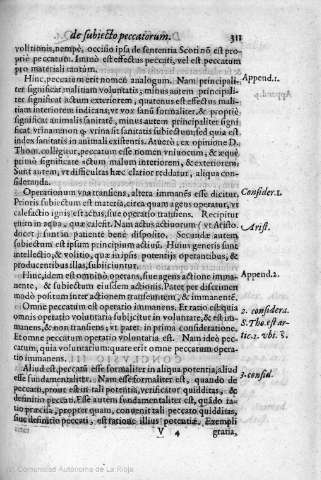 de subiecto peccatorum. 311
volitionis, nempè, occisio ipsa de sententia Scoti nō est pro-
priè peccatum. Immò est effectus peccati, vel est peccatum
pro materiali tantùm.
Hinc, peccatum erit nomen analogum. Nam principali-
ter significat malitiam voluntatis; minus autem principali-
ter significat actum exteriorem, quatenus est effectus mali-
tiam interiorem indicans, vt vox sanū formaliter, & propriè
significat animalis sanitatē, minus autem principaliter signi-
ficat vrinam non q vrina sit sanitatis subiectum, sed quia est
index sanitatis in animali existentis. At verò, ex opinione D.
Thom. colligitur, peccatum esse nomen vniuocum, & æquè
primò significare actum malum interiorem, & exteriorem;
Sunt autem, vt difficultas hæc clarior reddatur, aliqua con-
sideranda.
Append.1.
Operationum vna transiens, altera immanēs esse dicitur.
Prioris subiectum est materia, circa quam agens operatur, vt
calefactio ignis est actus, siue operatio transiens. Recipitur
enim in aqua, quæ calescit. Nam actus actiuorum (vt Aristo.
docet) sunt in patiente benè disposito. Secundæ autem
subiectum est ipsum principium actiuū. Huius generis sunt
intellectio, & volitio, quæ in ipsis potentijs operantibus, &
producentibus illas, subijciuntur.
Consider.1.
Arist.
Hinc, idem est omninò operans, siue agens actione imma-
nente, & subiectum eiusdem actionis. Patet per discrimen
modò positum inter actionem transeuntem, & immanentē.
Append.2
Omne peccatum est operatio immanens. Et ratio est quia
omnis operatio voluntatis subijcitur in voluntate, & est im-
manens, & non transiens; vt patet in prima consideratione.
Et omne peccatum operatio voluntatis est. Nam ideò pec-
catum, quia voluntarium: quare erit omne peccatum opera-
tio immanens.
2. considera.
S. Tho. est ar-
tic.1. vbi. S.
Aliud est, peccatū esse formaliter in aliqua potentia, aliud
esse fundamentaliter. Nam esse formaliter est, quando de
peccati, prout est in tali potentia, verificatur quidditas, &
definitio peccati. Esse autem fundamentaliter est, quādo ta-
tio præcisa, propter quam, conuenit tali peccato quidditas,
siue definitio peccati, est ratione illius potentiæ. Exempli
3. consid.
V 4 gratia,
Comunidad Autónoma de La Rioja